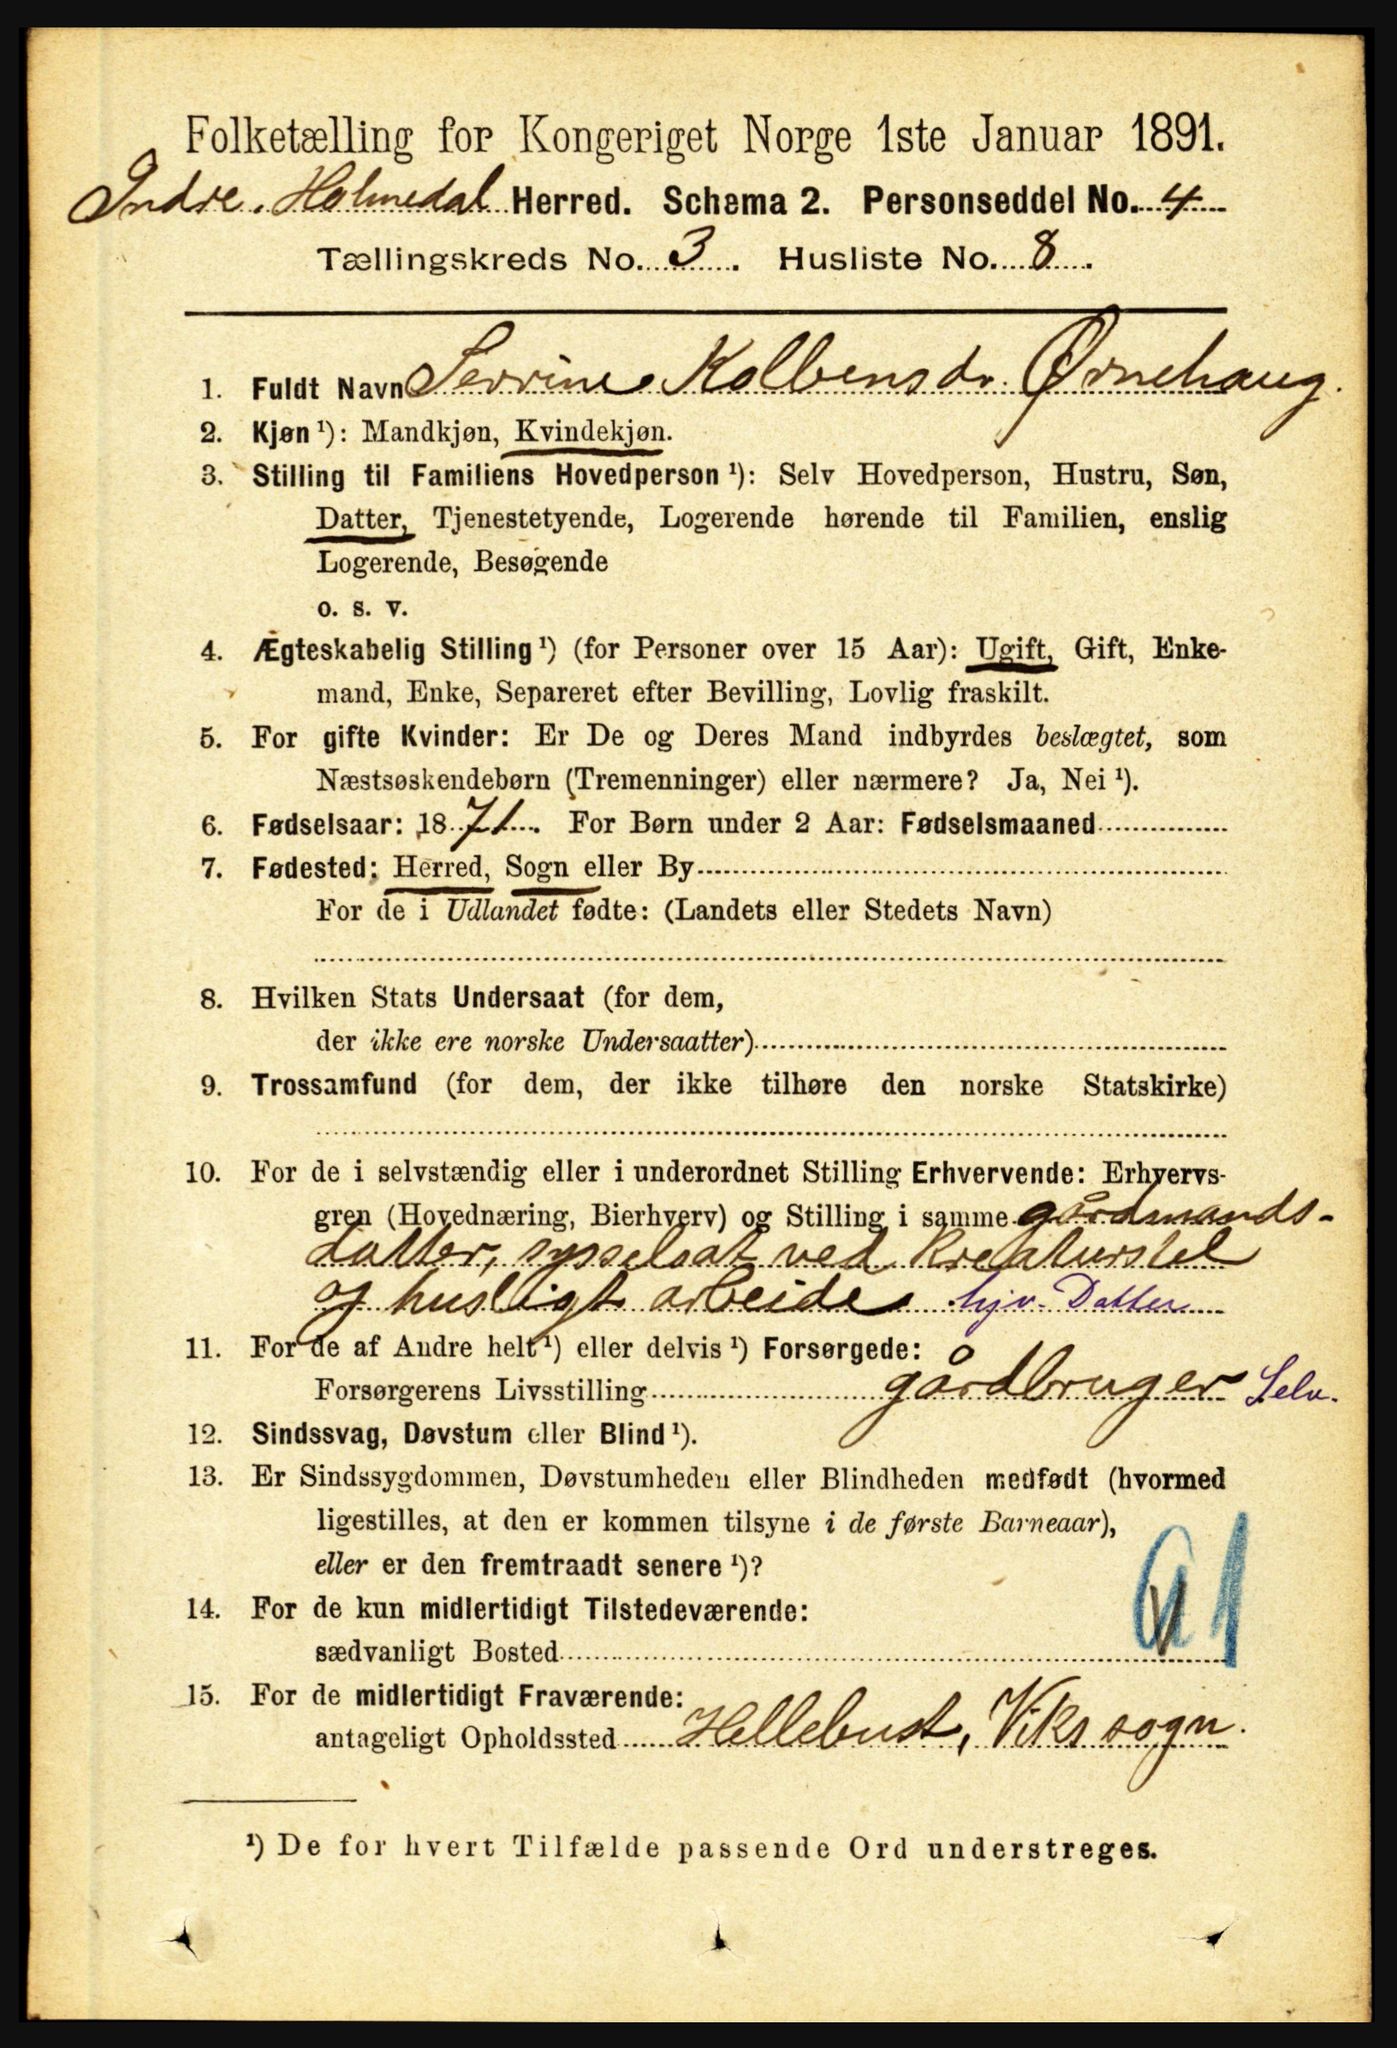 Folketælling for Kongeriget Norge 1ste Januar 1891.
Indre Holmedal Herred. Schema 2. Personseddel No. 4
Tællingskreds No. 3. Husliste No. 8.
1. Fuldt Navn Serrine Kolbensdr. Ørnehaug.
2. Kjøn ¹): Mandkjøn, Kvindekjøn.
3. Stilling til Familiens Hovedperson ¹): Selv Hovedperson, Hustru, Søn,
Datter, Tjenestetyende, Logerende hørende til Familien, enslig
Logerende, Besøgende
o. s. v.
4. Ægteskabelig Stilling ¹) (for Personer over 15 Aar): Ugift, Gift, Enke-
mand, Enke, Separeret efter Bevilling, Lovlig fraskilt.
5. For gifte Kvinder: Er De og Deres Mand indbyrdes beslægtet, som
Næstsøskendebørn (Tremenninger) eller nærmere? Ja, Nei ¹).
6. Fødselsaar: 1871. For Børn under 2 Aar: Fødselsmaaned
7. Fødested: Herred, Sogn eller By
For de i Udlandet fødte: (Landets eller Stedets Navn)
8. Hvilken Stats Undersaat (for dem,
der ikke ere norske Undersaatter)
9. Trossamfund (for dem, der ikke tilhøre den norske Statskirke)
10. For de i selvstændig eller i underordnet Stilling Erhvervende: Erhvervs-
gren (Hovednæring, Bierhverv) og Stilling i samme gårdmands-
datter, sysselsat ved Kreaturstel
og husligt arbeide. hjv. Datter
11. For de af Andre helt ¹) eller delvis ¹) Forsørgede:
Forsørgerens Livsstilling gårdbruger Selv.
12. Sindssvag, Døvstum eller Blind ¹).
13. Er Sindssygdommen, Døvstumheden eller Blindheden medfødt (hvormed
ligestilles, at den er kommen tilsyne i de første Barneaar),
eller er den fremtraadt senere ¹)?
14. For de kun midlertidigt Tilstedeværende:
sædvanligt Bosted
15. For de midlertidigt Fraværende:
antageligt Opholdssted Hellebust, Viks sogn.
¹) De for hvert Tilfælde passende Ord understreges.